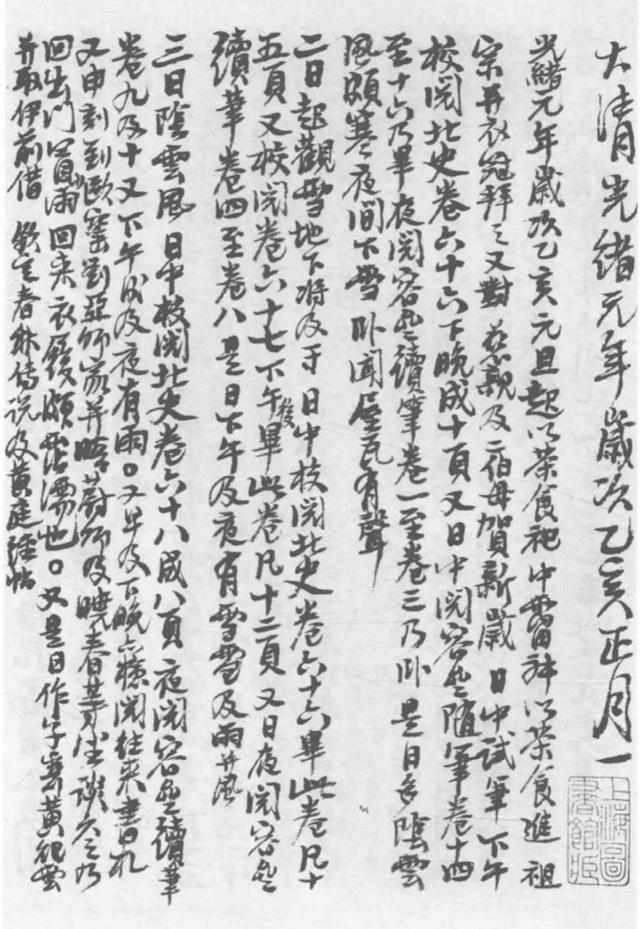 大清光緒元年歲次乙亥正月一
上海圖書館藏
光緒元年歲次乙亥元旦起以茶食祀中霤神以茶食進 祖
宗並衣冠拜之又對 慈親及二伯母賀新歲 日中試筆下午
校閱北史卷六十六下晚成十頁又日中閱容齋隨筆卷十四
至十六乃畢夜閱容齋續筆卷一至卷三乃卧 是日多陰雲
風頗寒夜間下雪 卧聞屋瓦有聲
二日起觀雪地下將及寸 日中校閱北史卷六十六畢此卷凡十
五頁又校閱卷六十七下午後畢此卷凡十二頁 又日夜閱容齋
續筆卷四至卷八 是日下午及夜有雪雪及雨并風
三日陰雲風 日中校閱北史卷六十八成八頁 夜閱容齋續筆
卷九及十 又下午 及夜有雨。又早及下晚 檢閱往來書札
又申刻到 劉亞師家并晤蔚師及曉春等坐談久之乃
回出門 雨回來衣 頗霑濡也。又是日作字 黃
并取伊前借 春秋傳說及黃庭經帖